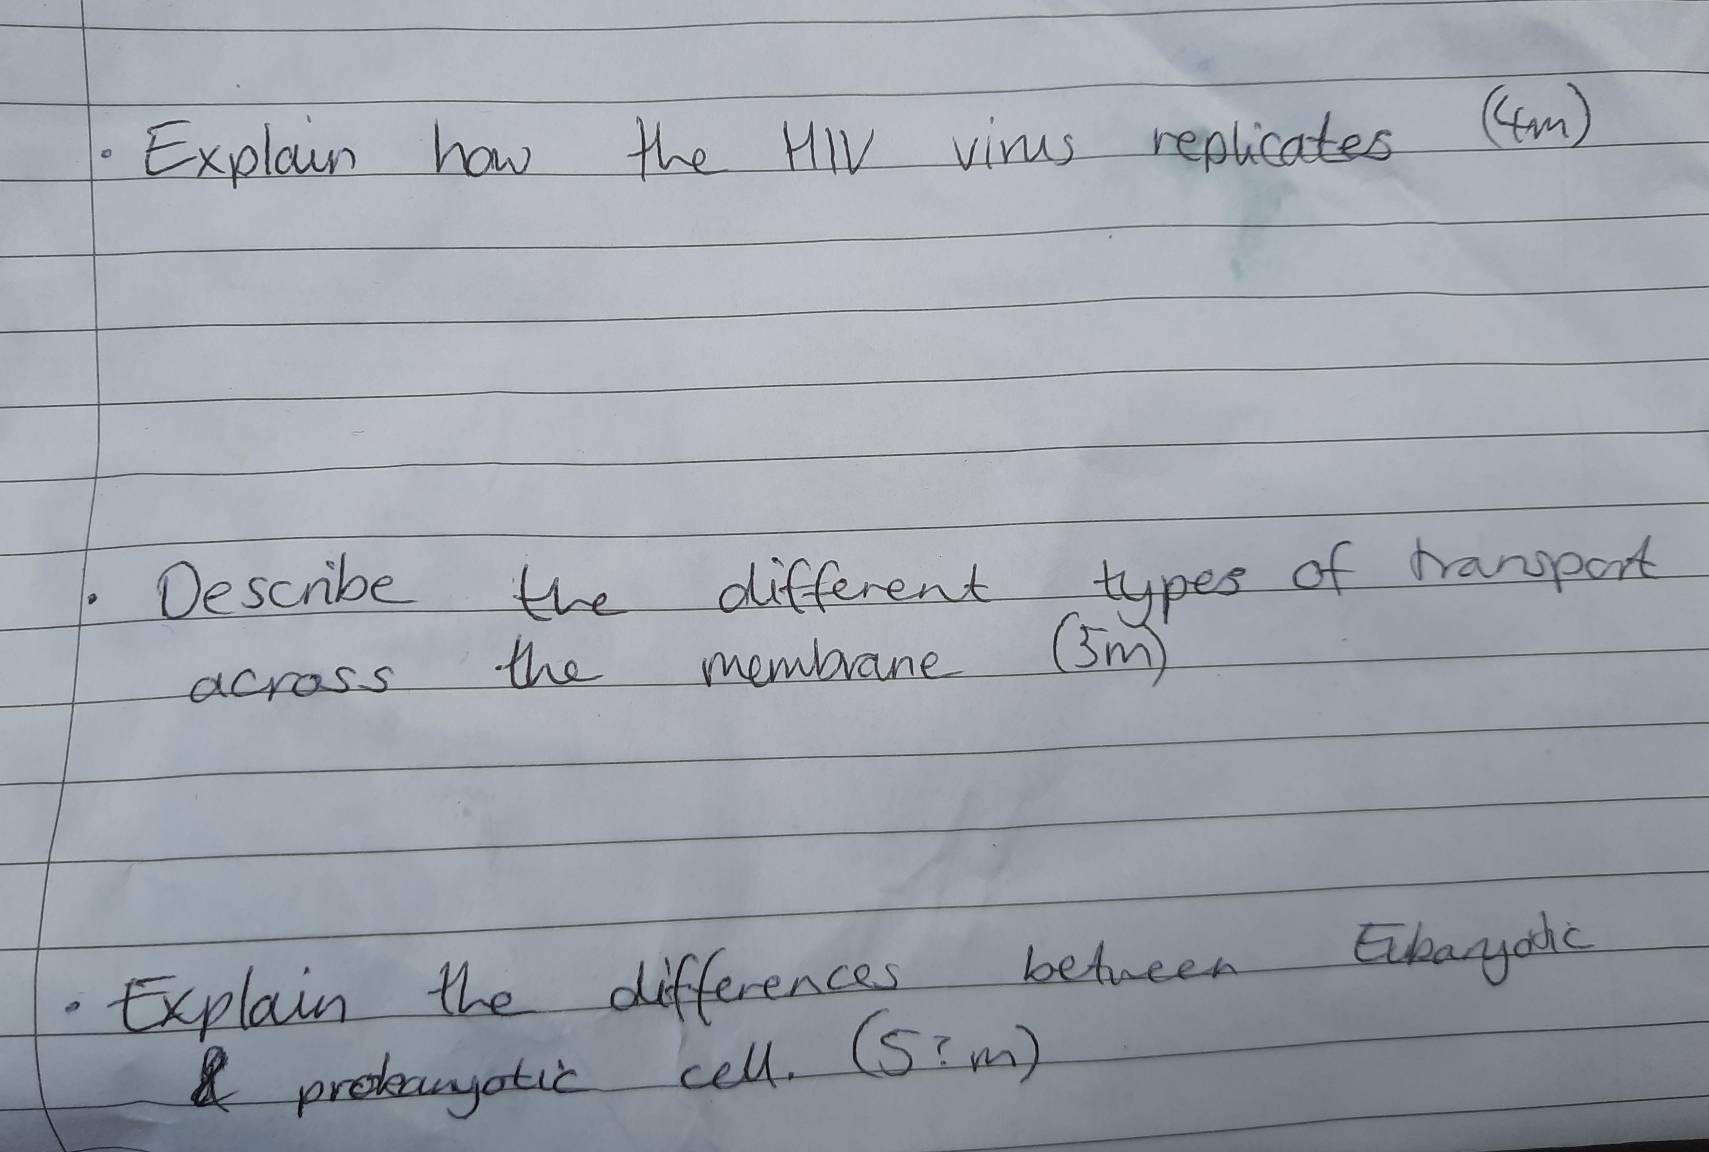 • Explain how the HIV virus replicates (4m)
• Describe the different types of transport
across the membrane (5m)
• Explain the differences between Eukaryotic
& prokaryotic cell. (5?m)